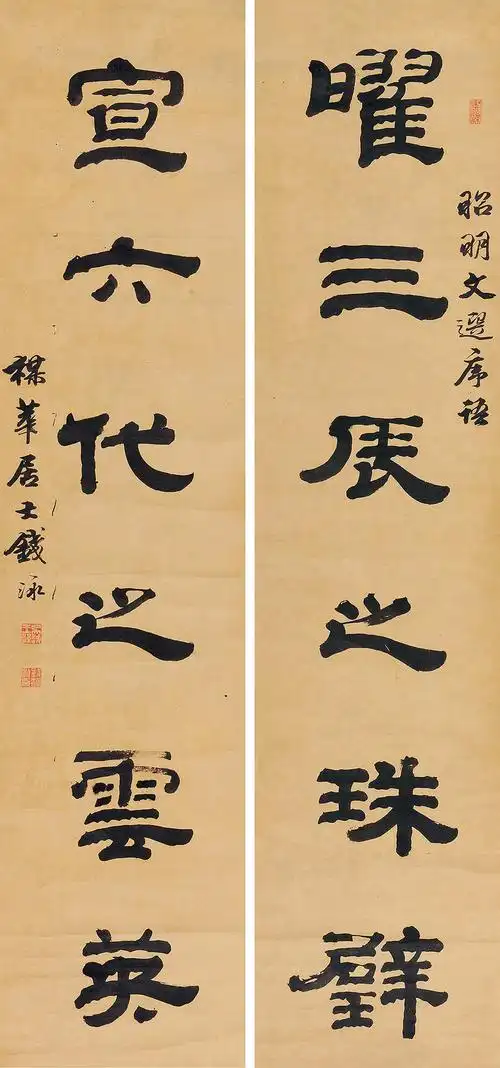 昭明文選序語
曜三辰之珠璧
宣六代之雲英
楳華居士錢泳